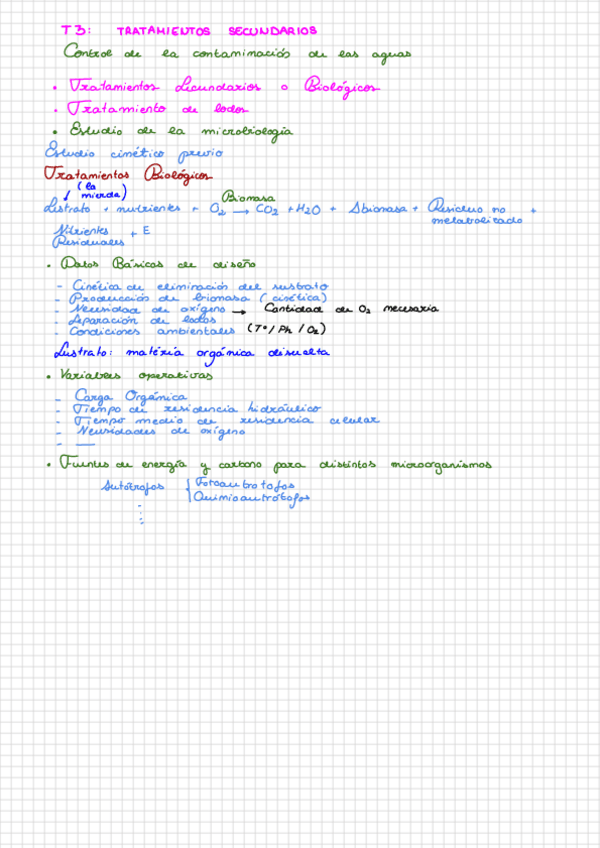 T3: TRATAMIENTOS SECUNDARIOS
Control de la contaminación de las aguas
• Tratamientos Secundarios o Biológicos
• Tratamiento de lodos
• Estudio de la microbiología
Estudio cinético previo
Tratamientos Biológicos
(la mierda)
Biomasa
Sustrato + nutrientes + O2 → CO2 + H2O + Δbiomasa + Residuo no metabolizado +
Nutrientes Residuales + E
• Datos Básicos de diseño
- Cinética de eliminación del sustrato
- Producción de biomasa (cinética)
- Necesidad de oxígeno → Cantidad de O2 necesaria
- Separación de lodos
- Condiciones ambientales (Tº/Ph/O2)
Sustrato: matéria orgánica disuelta
• Variables operativas
- Carga Orgánica
- Tiempo de residencia hidráulico
- Tiempo medio de residencia celular
- Necesidades de oxígeno
- —
• Fuentes de energía y carbono para distintos microorganismos
Autótrofos { Fotoautrotofos
Quimioautrótofos
⋮